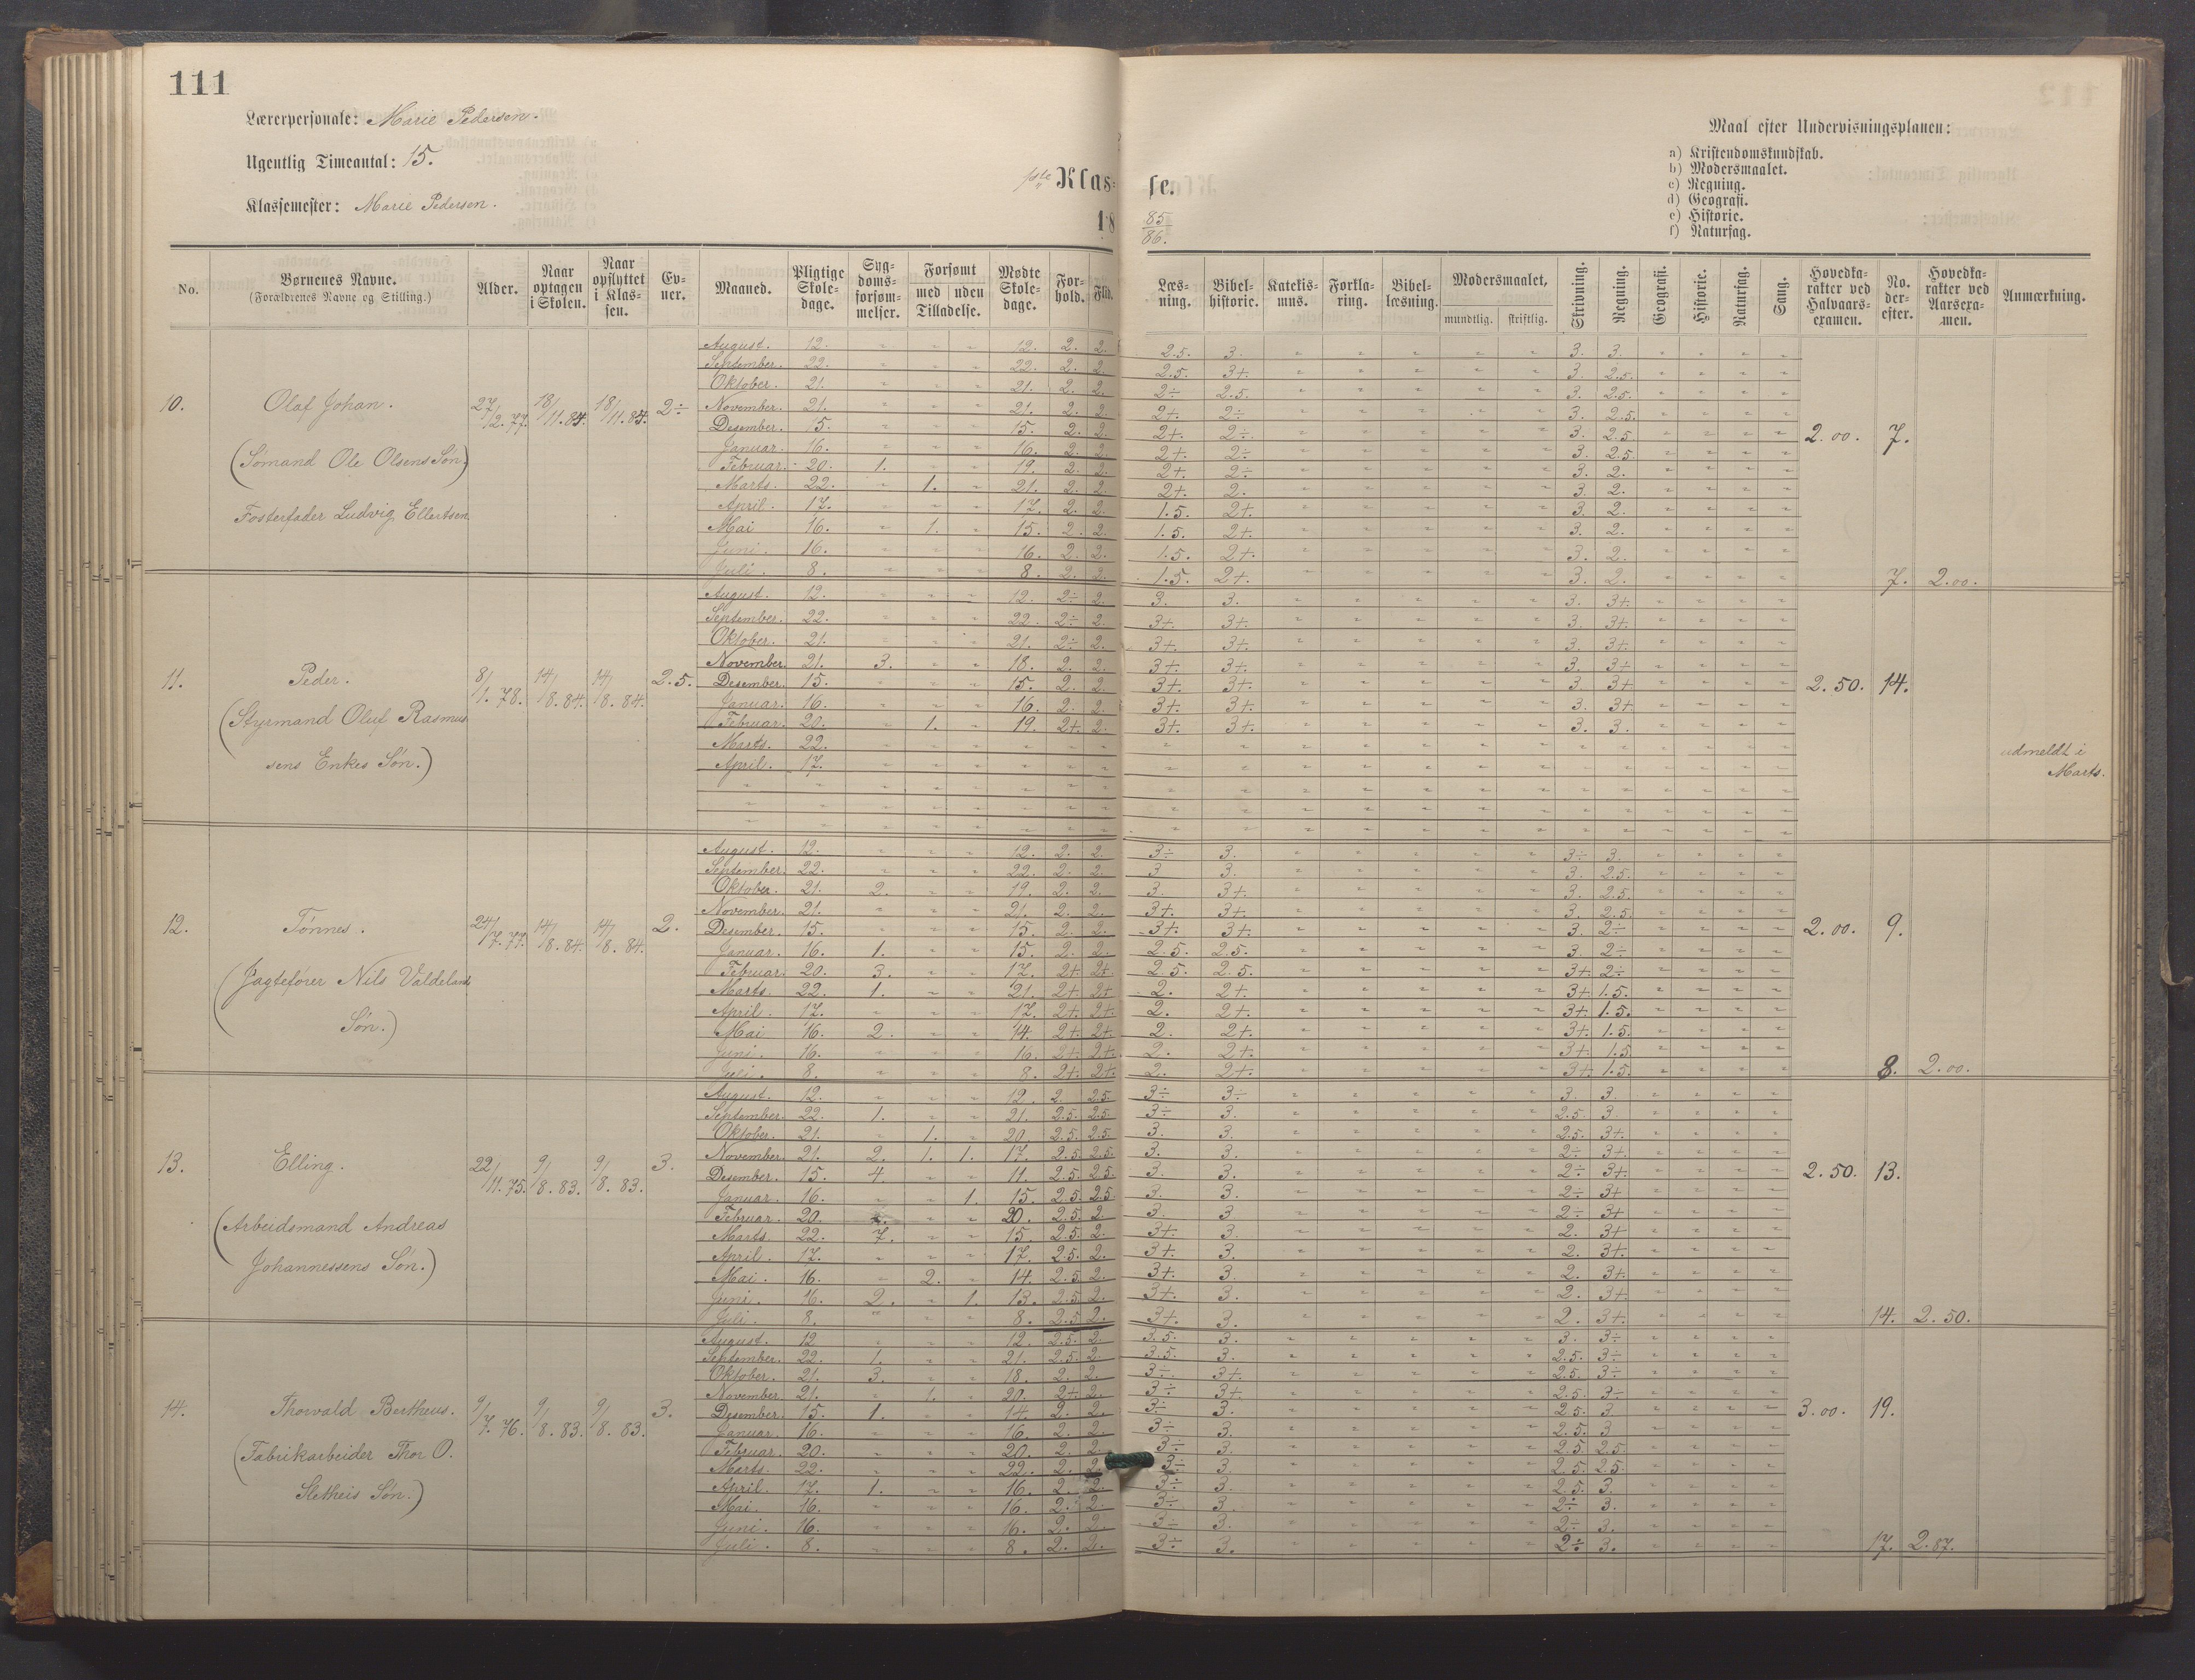 111
Lærerpersonale: Marie Pedersen.
Ugentlig Timeantal: 15.
Klassemester: Marie Pedersen.
1ste Klas= se.
18 85/86.
Maal efter Undervisningsplanen:
a) Kristendomskundskab.
b) Modersmaalet.
c) Regning.
d) Geografi.
e) Historie.
f) Naturfag.
No. Børnenes Navne. (Forældrenes Navne og Stilling.) Alder. Naar optagen i Skolen. Naar opflyttet i Klas- sen. Ev- ner. Maaned. Pligtige Skole- dage. Syg- doms- forsøm- melser. Forsømt med uden Tilladelse. Mødte Skole- dage. For- hold. Flid. Læs- ning. Bibel- historie. Katekis- mus. Forkla- ring. Bibel- læsning. Modersmaalet, mundtlig. skriftlig. Skrivning. Regning. Geografi. Historie. Naturfag. Sang. Hovedka- rakter ved Halvaars- examen. No. der- efter. Hovedka- rakter ved Aarsexa- men. Anmærkning.
10. Olaf Johan. 27/2.77. 18/11.84. 18/11.84. 2÷ 2.00. 7.
(Sømand Ole Olsens Søn)
Fosterfader Ludvig Ellertsen
August. 12. " " " 12. 2. 2. 2.5. 3. " " " " " 3. 3. " " " "
September. 22. " " " 22. 2. 2. 2.5. 3+. " " " " " 3. 2.5. " " " "
Oktober. 21. " " " 21. 2. 2. 2÷ 2.5. " " " " " 3. 2.5. " " " "
November. 21. " " " 21. 2. 2. 2+. 2÷ " " " " " 3. 2.5. " " " "
Desember. 15. " " " 15. 2. 2. 2+. 2÷ " " " " " 3. 2.5 " " " "
Januar. 16. " " " 16. 2. 2. 2+. 2÷ " " " " " 3. 2.5. " " " "
Februar. 20. 1. " " 19. 2. 2. 2+. 2÷ " " " " " 3. 2. " " " "
Marts. 22. " 1. " 21. 2. 2. 2+. 2. " " " " " 3. 2. " " " "
April. 17. " " " 17. 2. 2. 1.5. 2+. " " " " " 3. 2. " " " "
Mai 16. " 1. " 15. 2. 2. 1.5. 2+. " " " " " 3. 2. " " " "
Juni. 16. " " " 16. 2. 2. 1.5. 2+. " " " " " 3. 2. " " " "
Juli. 8. " " " 8. 2. 2. 1.5. 2+. " " " " " 3. 2. " " " " 7. 2.00.
11. Peder. 8/1.78. 14/8.84. 14/8.84. 2.5. 2.50. 14.
(Styrmand Oluf Rasmus
sens Enkes Søn.)
August. 12. " " " 12. 2÷ 2. 3. 3. " " " " " 3. 3+. " " " "
September. 22. " " " 22. 2÷ 2. 3+. 3+. " " " " " 3. 3+. " " " "
Oktober. 21. " " " 21. 2÷ 2. 3+. 3+. " " " " " 3. 3+. " " " "
November. 21. 3. " " 18. 2. 2. 3+. 3+. " " " " " 3. 3+ " " " "
Desember. 15. " " " 15. 2. 2. 3+. 3+. " " " " " 3. 3+. " " " "
Januar. 16. " " " 16. 2. 2. 3+. 3+. " " " " " 3. 3+. " " " "
Februar. 20. " 1. " 19. 2+. 2. 3+. 3+. " " " " " 3. 3. " " " "
Marts. 22. " " " " " " " " " " " " " " " " " " "
April. 17. " " " " " " " " " " " " " " " " " " "
udmeldt i
Marts.
12. Tønnes. 24/7.77. 14/8.84. 14/8.84. 2. 2.00. 9.
(Jagtefører Nils Valdelands
Søn.)
August. 12. " " " 12. 2. 2. 3÷ 3. " " " " " 3÷ 3. " " " "
September. 22. " " " 22. 2. 2. 3 3. " " " " " 3. 2.5. " " " "
Oktober. 21. 2. " " 19. 2. 2. 3. 3+. " " " " " 3. 2.5. " " " "
November. 21. " " " 21. 2. 2. 3+. 3+. " " " " " 3. 2.5. " " " "
Desember. 15. " " " 15. 2. 2. 3+. 3+. " " " " " 3. 2÷ " " " "
Januar. 16. 1. " " 15. 2. 2. 2.5. 2.5. " " " " " 3. 2÷ " " " "
Februar. 20. 3. " " 17. 2+ 2+. 2.5. 2.5. " " " " " 3+. 2÷ " " " "
Marts. 22. 1. " " 21. 2+. 2+ 2. 2+. " " " " " 3+. 1.5. " " " "
April. 17. " " " 17. 2+. 2+. 2. 2+. " " " " " 3+. 1.5. " " " "
Mai 16. 2. " " 14. 2+. 2+. 2. 2+. " " " " " 3+. 1.5. " " " "
Juni. 16. " " " 16. 2+. 2+. 2. 2+. " " " " " 3+. 1.5. " " " "
Juli. 8. " " " 8. 2+. 2+. 2. 2+. " " " " " 3+. 1.5. " " " " 8. 2.00.
13. Elling. 22/11.75. 9/8.83. 9/8.83. 3. 2.50. 13.
(Arbeidsmand Andreas
Johannessens Søn.)
August. 12. " " " 12. 2. 2.5. 3÷ 3÷ " " " " " 3. 3. " " " "
September. 22. 1. " " 21. 2.5. 2.5. 3÷ 3. " " " " " 2.5. 3. " " " "
Oktober. 21. " 1. " 20. 2.5. 2.5. 3. 3. " " " " " 2.5. 3+. " " " "
November. 21. 2. 1. 1. 17. 2.5. 2.5. 3. 3. " " " " " 2÷ 3+. " " " "
Desember. 15. 4. " " 11. 2.5. 2.5. 3. 3. " " " " " 2÷ 3+. " " " "
Januar. 16. " " 1. 15. 2.5. 2.5 3. 3. " " " " " 2÷ 3+ " " " "
Februar. 20. " " " 20. 2.5. 2. 3. 3 " " " " " 2÷ 3+ " " " "
Marts. 22. 7. " " 15. 2.5. 2. 3+. 3. " " " " " 2. 3+ " " " "
April. 17. " " " 17. 2.5. 2. 3+. 3. " " " " " 2. 3+. " " " "
Mai. 16. " 2. " 14. 2.5. 2. 3+. 3. " " " " " 2. 3+. " " " "
Juni. 16. 2. " 1. 13. 2.5. 2. 3+. 3. " " " " " 2. 3+. " " " "
Juli. 8. " " " 8. 2.5 2. 3+. 3. " " " " " 2. 3+. " " " " 14. 2.50.
14. Thorvald Bertheus. 9/7.76. 9/8.83. 9/8.83. 3. 3.00. 19.
(Fabrikarbeider Thor O.
Sletheis Søn.)
August. 12 " " " 12. 2.5. 2. 3.5. 3. " " " " " 3. 3÷ " " " "
September. 22. 1. " " 21. 2.5. 2. 3.5. 3. " " " " " 2.5. 3÷ " " " "
Oktober. 21. 3. " " 18. 2. 2. 3÷ 3+. " " " " " 2.5. 3÷ " " " "
November 21. " 1. " 20. 2+. 2. 3÷ 3+. " " " " " 2.5. 3÷ " " " "
Desember. 15. 1. " " 14. 2. 2. 3÷ 3. " " " " " 2.5. 3. " " " "
Januar. 16. " " " 16. 2. 2. 3÷ 3. " " " " " 2.5. 3 " " " "
Februar. 20. " " " 20. 2. 2. 3÷ 3. " " " " " 2.5. 2.5. " " " "
Marts. 22. " " " 22. 2. 2. 3÷ 3. " " " " " 2.5. 2.5. " " " "
April. 17. 1. " " 16. 2. 2. 3÷ 3. " " " " " 2.5. 3. " " " "
Mai. 16. " " " 16. 2. 2. 3÷ 3. " " " " " 2÷ 3. " " " "
Juni. 16. " " " 16. 2. 2. 3÷ 3. " " " " " 2÷ 3. " " " "
Juli. 8. " " " 8. 2. 2. 3÷ 3. " " " " " 2÷ 3. " " " " 17. 2.87.